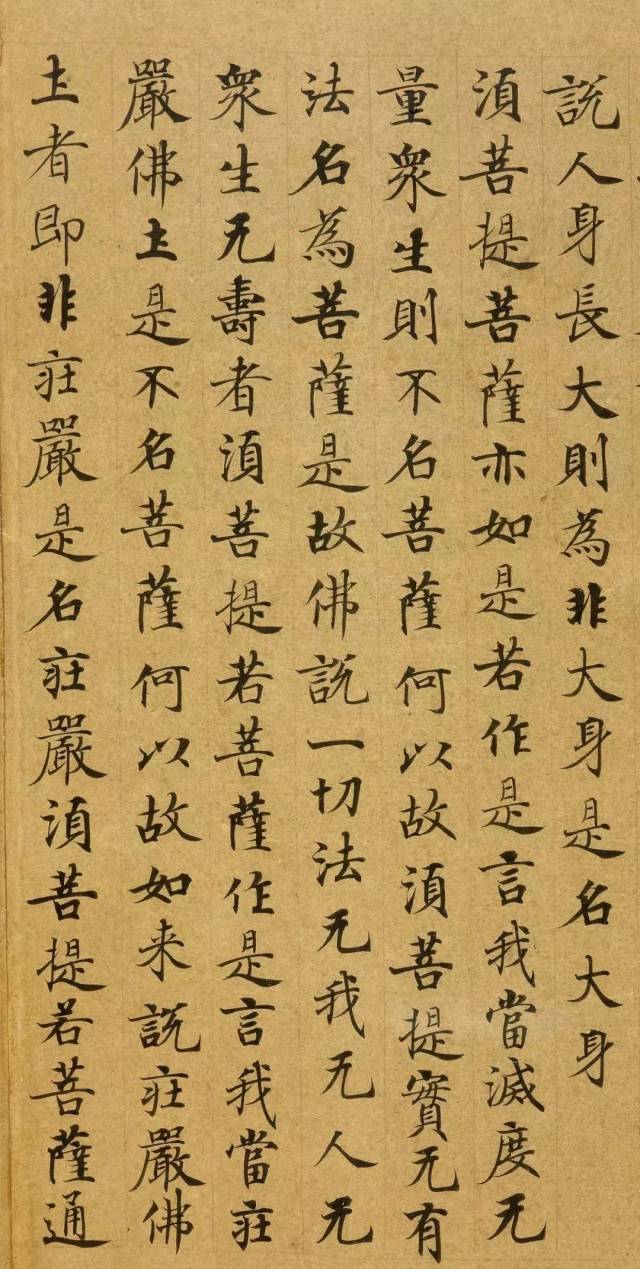 說人身長大則為非大身是名大身
須菩提菩薩亦如是若作是言我當滅度无
量衆生則不名菩薩何以故須菩提實无有
法名為菩薩是故佛說一切法无我无人无
衆生无壽者須菩提若菩薩作是言我當庄
嚴佛土是不名菩薩何以故如来說庄嚴佛
土者即非庄嚴是名庄嚴須菩提若菩薩通